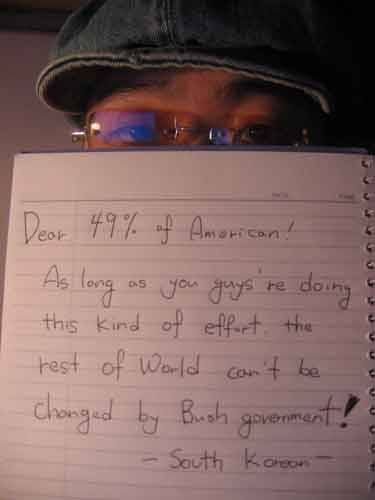 Dear 49% of American!
As long as you guys're doing
this kind of effort. the
rest of World can't be
changed by Bush goverment!
- South Korean -